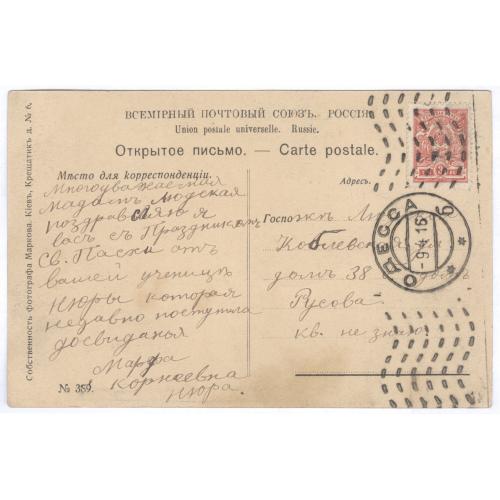 ВСЕМІРНЫЙ ПОЧТОВЫЙ СОЮЗЪ. РОССІЯ.
Union postale universelle. Russie.
Открытое письмо. — Carte postale.
Мѣсто для корреспонденціи.
Адресъ.
Многоуважаемая
мадам Людская
поздравляю я
васъ съ Праздникомъ
Св. Пасхи отъ
вашей ученицы
Нюры которая
недавно поступила
досвиданья
Марфа
Корнеевна
Нюра.
Госпожѣ
Коблевская
домъ 38
Русова
кв. не знаю
ОДЕССА
-9.4.16
6
№ 389.
Собственность фотографа Маркова. Кіевъ, Крещатикъ д. № 6.